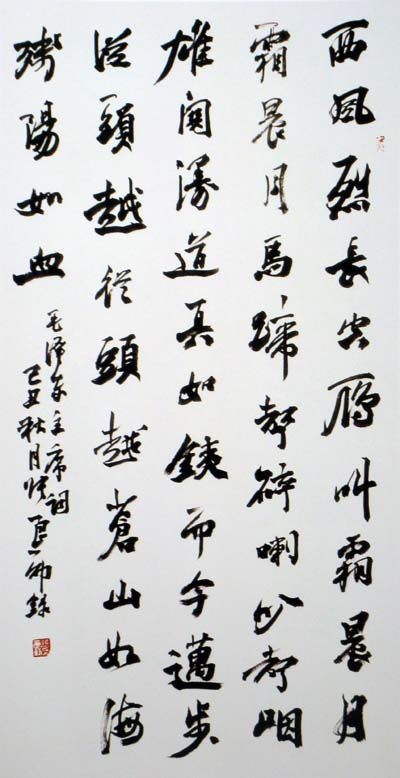 西風烈長空雁叫霜晨月
霜晨月馬蹄聲碎喇叭聲咽
雄関漫道真如鐵而今邁步
從頭越從頭越蒼山如海
殘陽如血
毛澤东主席詞
己丑秋月